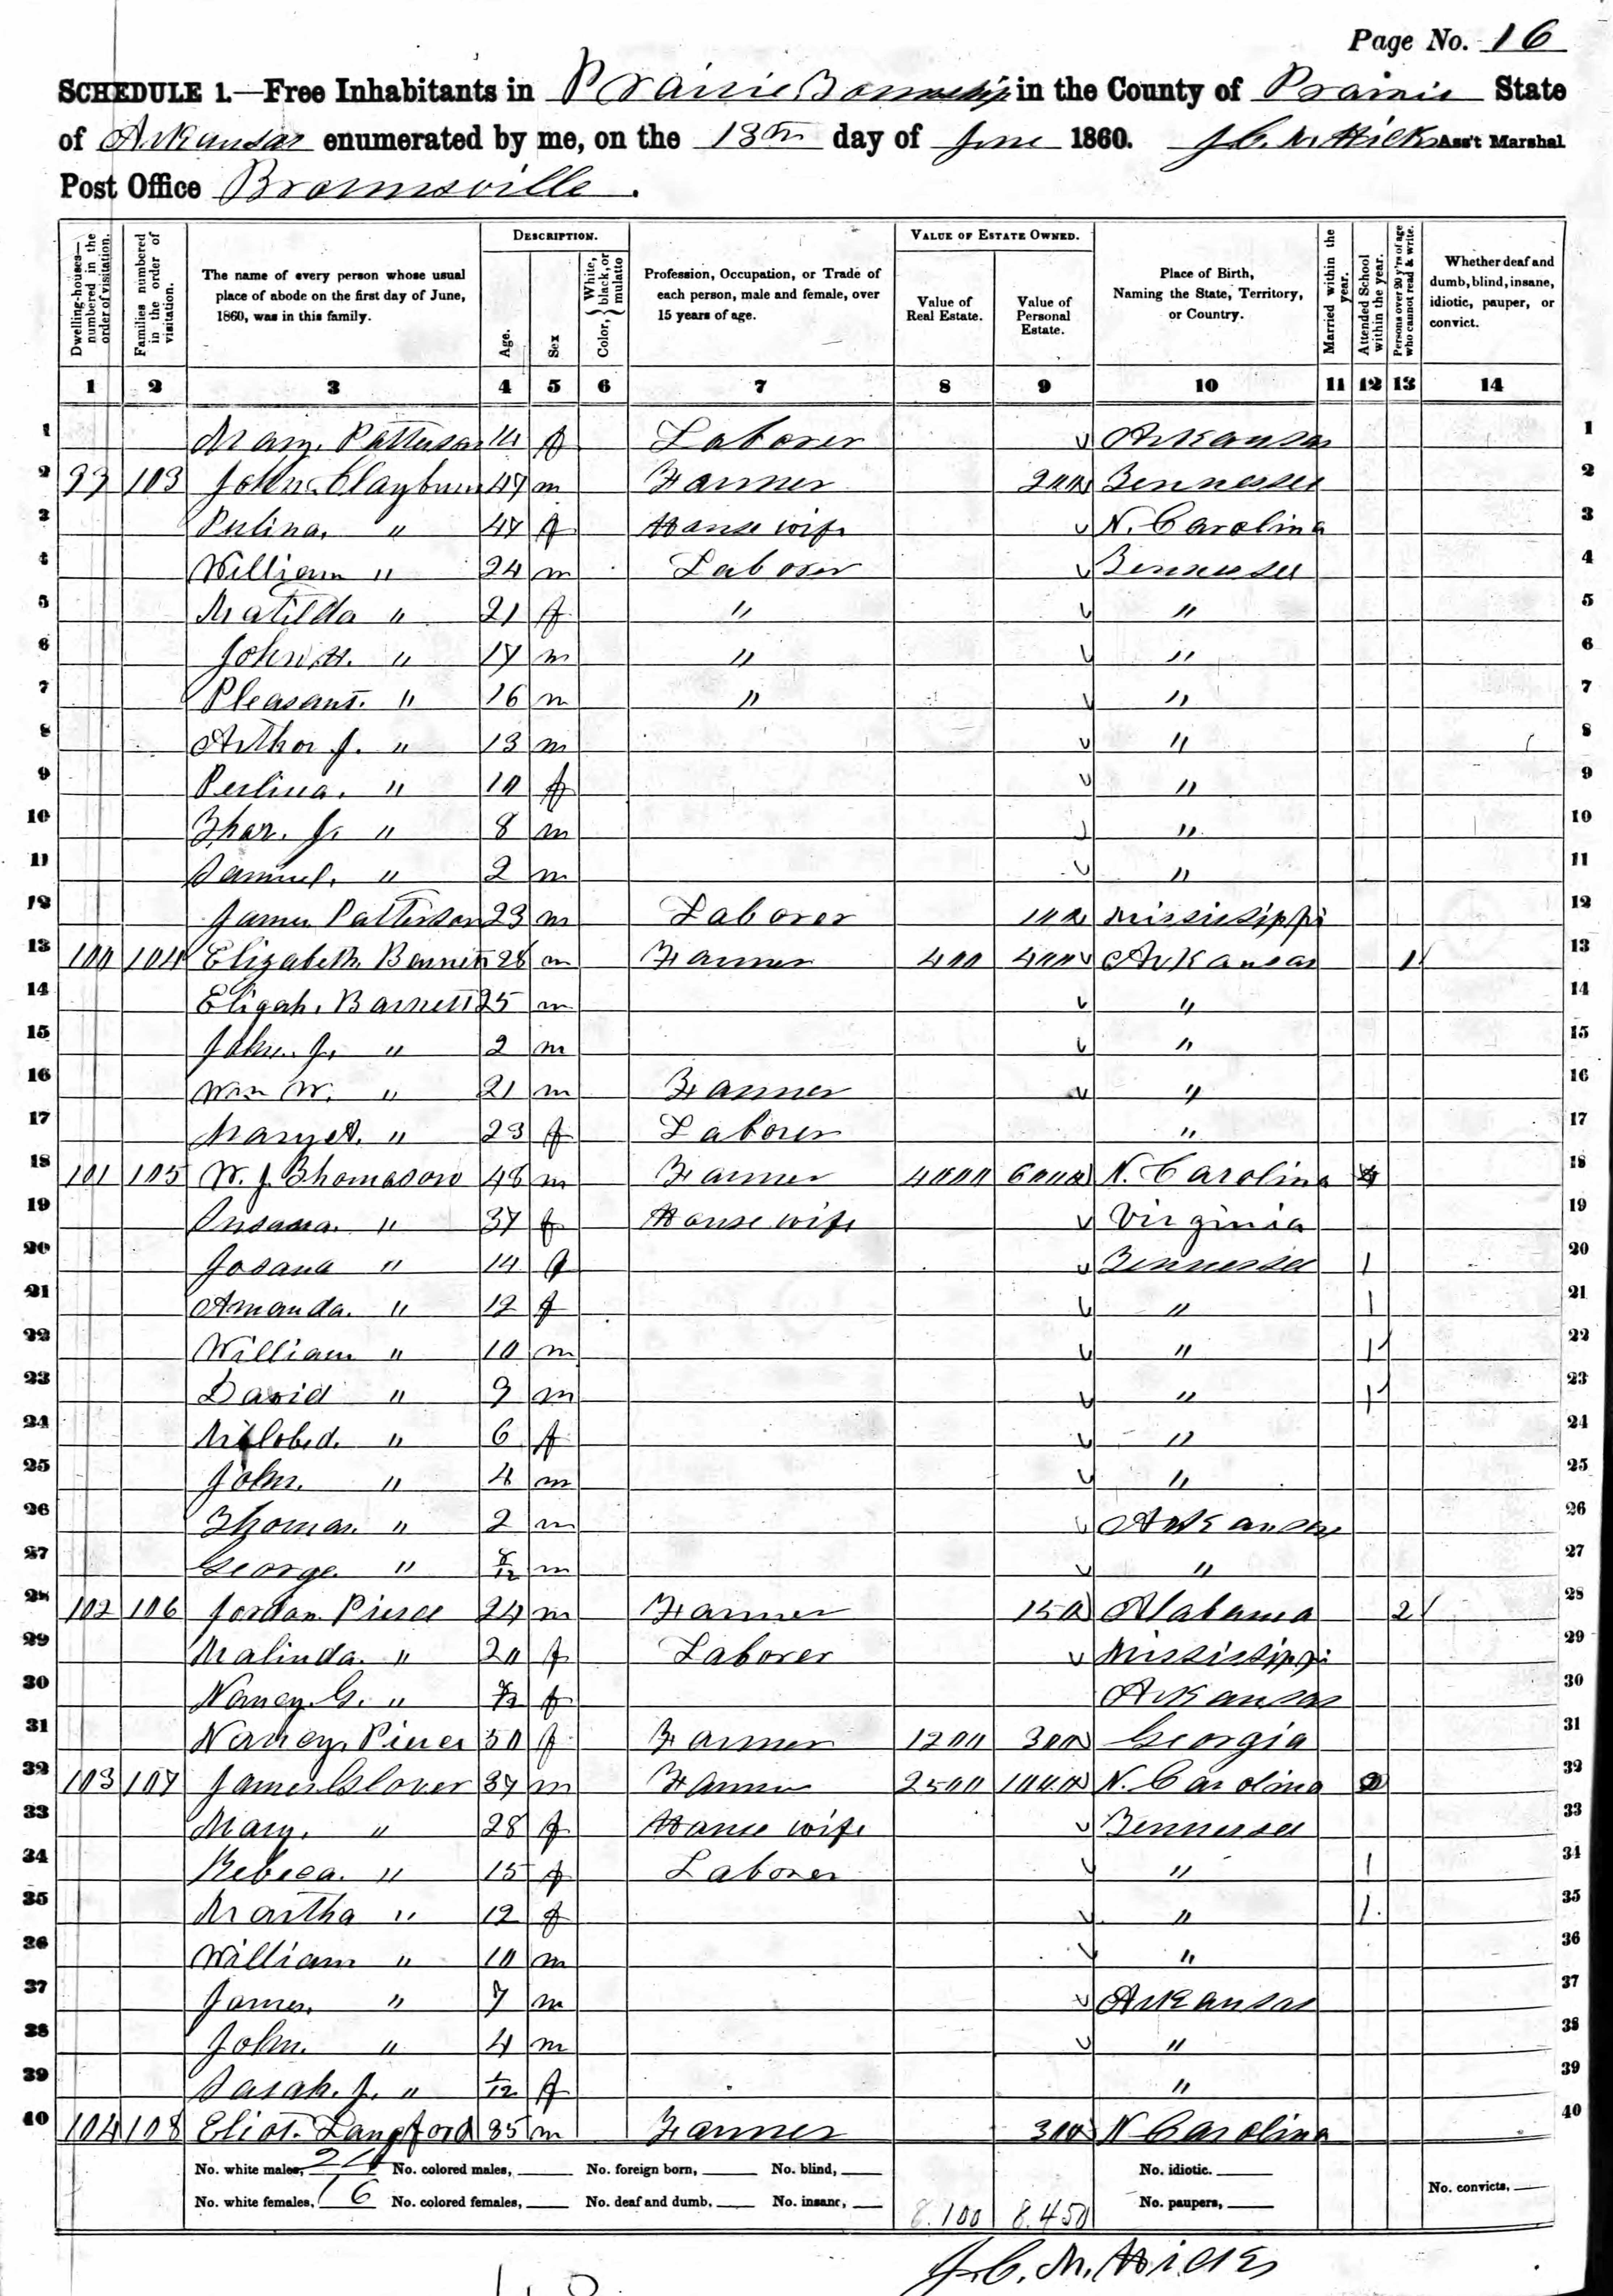 Page No. 16
SCHEDULE 1.—Free Inhabitants in Prairie Township in the County of Prairie State
of Arkansas enumerated by me, on the 13th day of June 1860. J. C. M. Hicks Ass't Marshal
Post Office Brownsville.
Dwelling-houses—numbered in the order of visitation.
Families numbered in the order of visitation.
The name of every person whose usual place of abode on the first day of June, 1860, was in this family.
DESCRIPTION.
Age.
Sex
Color, { White, black, or mulatto
Profession, Occupation, or Trade of each person, male and female, over 15 years of age.
VALUE OF ESTATE OWNED.
Value of Real Estate.
Value of Personal Estate.
Place of Birth, Naming the State, Territory, or Country.
Married within the year.
Attended School within the year.
Persons over 20 y'rs of age who cannot read & write.
Whether deaf and dumb, blind, insane, idiotic, pauper, or convict.
1 2 3 4 5 6 7 8 9 10 11 12 13 14
1 Mary Patterson 14 f Laborer Arkansas 1
2 99 103 John Clayburn 47 m Farmer 200 Tennessee 2
3 Pulina " 47 f House wife N. Carolina 3
4 William " 24 m Laborer Tennessee 4
5 Matilda " 21 f " " 5
6 John H. " 17 m " " 6
7 Pleasant " 16 m " " 7
8 Arthor J. " 13 m " 8
9 Perlina " 10 f " 9
10 J. " 8 m " 10
11 Samuel " 2 m " 11
12 James Patterson 23 m Laborer 100 Mississippi 12
13 100 104 Elizabeth Barnett 28 m Farmer 400 400 Arkansas 1 13
14 Eligah Barnett 25 m " 14
15 John J. " 2 m " 15
16 Wm W. " 21 m Farmer " 16
17 " 23 f Laborer " 17
18 101 105 W. J. Thomason 48 m Farmer 4000 6000 N. Carolina 18
19 " 37 f House wife Virginia 19
20 Josana " 14 f Tennessee 1 20
21 Amanda " 12 f " 1 21
22 William " 10 m " 1 22
23 David " 9 m " 1 23
24 " 6 f " 24
25 John " 4 m " 25
26 Thomas " 2 m Arkansas 26
27 George " /12 m " 27
28 102 106 Jordan Pierce 24 m Farmer 150 Alabama 2 28
29 Malinda " 20 f Laborer Mississippi 29
30 Nancy G. " /12 f Arkansas 30
31 Nancy Pierce 50 f Farmer 1200 300 Georgia 31
32 103 107 James Glover 37 m Farmer 2500 1000 N. Carolina 32
33 Mary " 28 f House wife Tennessee 33
34 Rebeca " 15 f Laborer " 1 34
35 Martha " 12 f " 1 35
36 William " 10 m " 36
37 James " 7 m Arkansas 37
38 John " 4 m " 38
39 Sarah J. " 1/12 f " 39
40 104 108 Eliot Langford 35 m Farmer 300 N Carolina 40
No. white males, 24 No. colored males, No. foreign born, No. blind, No. idiotic.
No. white females, 16 No. colored females, No. deaf and dumb, No. insane, 8.100 8.450 No. paupers, No. convicts,
J. C. M. Hicks